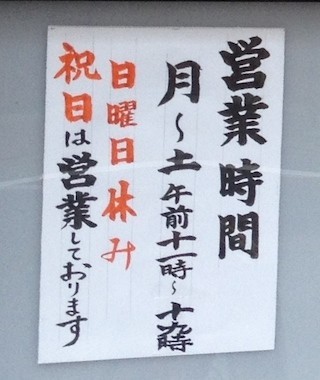 営業時間
月〜土 午前十一時〜十九時
日曜日休み
祝日は営業しております